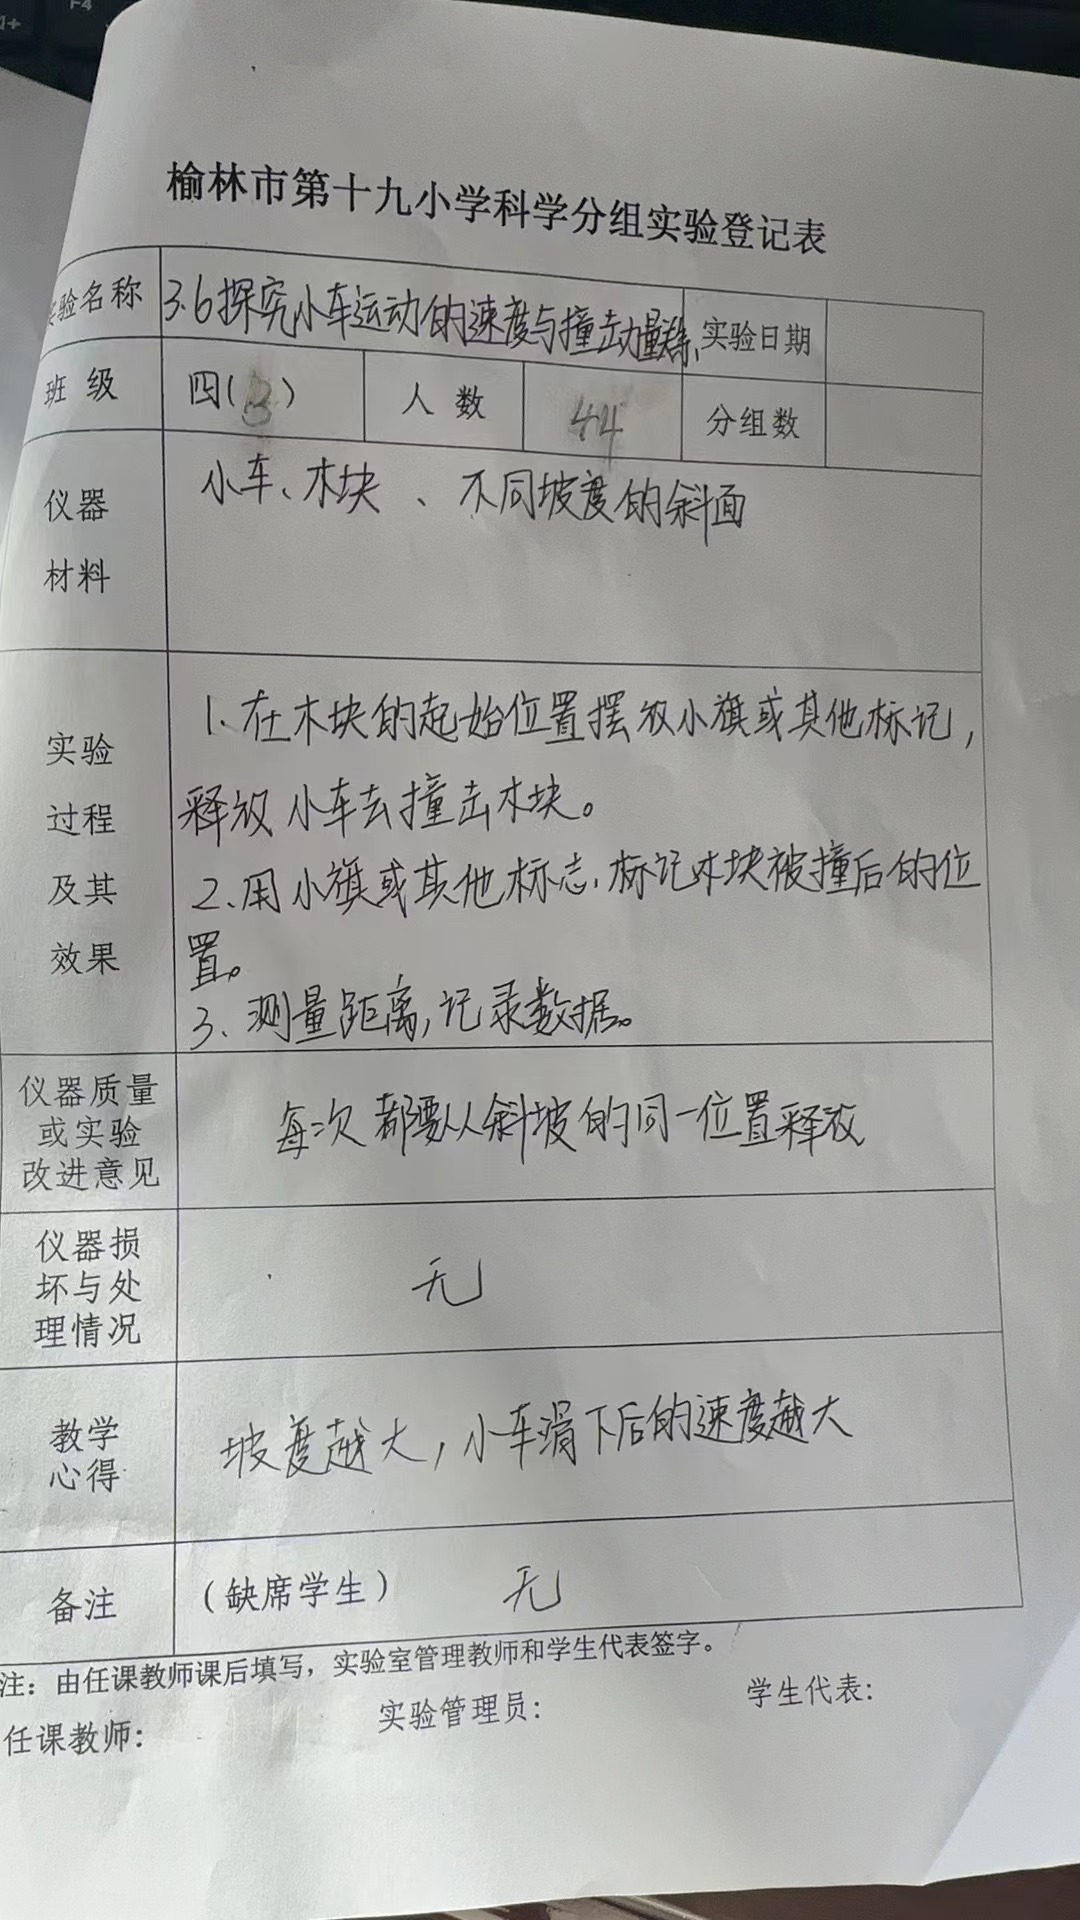 F4
榆林市第十九小学科学分组实验登记表
实验名称 3.6探究小车运动的速度与撞击力量 实验日期
班级 四(3) 人数 44 分组数
仪器材料 小车、木块、不同坡度的斜面
实验过程及其效果
1、在木块的起始位置摆放小旗或其他标记,
释放小车去撞击木块。
2、用小旗或其他标志,标记木块被撞后的位
置。
3、测量距离,记录数据。
仪器质量
或实验
改进意见
每次都要从斜坡的同一位置释放
仪器损
坏与处
理情况
无
教学
心得
坡度越大,小车滑下后的速度越大
备注 (缺席学生) 无
注:由任课教师课后填写,实验室管理教师和学生代表签字。
任课教师: 实验管理员: 学生代表: